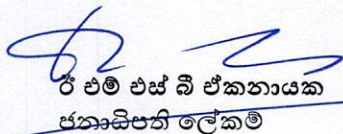 ඊ එම් එස් බී ඒකනායක
ජනාධිපති ලේකම්